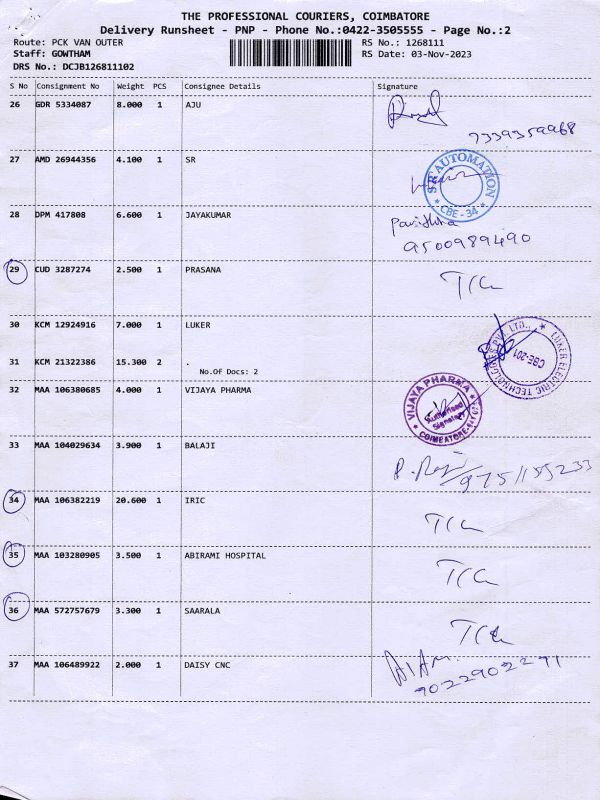 THE PROFESSIONAL COURIERS, COIMBATORE
Delivery Runsheet - PNP - Phone No.:0422-3505555 - Page No.:2
Route: PCK VAN OUTER RS No.: 1268111
Staff: GOWTHAM RS Date: 03-Nov-2023
DRS No.: DCJB126811102
S No Consignment No Weight PCS Consignee Details Signature
26 GDR 5334087 8.000 1 AJU
7339359968
27 AMD 26944356 4.100 1 SR
SR AUTOMATION
CBE - 34
28 DPM 417808 6.600 1 JAYAKUMAR
Pavithra
9500989490
29 CUD 3287274 2.500 1 PRASANA
30 KCM 12924916 7.000 1 LUKER
LUKER ELECTRIC TECHNOLOGIES PVT. LTD.,
CBE-201
31 KCM 21322386 15.300 2 .
No.Of Docs: 2
32 MAA 106380685 4.000 1 VIJAYA PHARMA
VIJAYA PHARMA
Authorised
Signatory
COIMBATORE
33 MAA 104029634 3.900 1 BALAJI
34 MAA 106382219 20.600 1 IRIC
35 MAA 103280905 3.500 1 ABIRAMI HOSPITAL
36 MAA 572757679 3.300 1 SAARALA
37 MAA 106489922 2.000 1 DAISY CNC